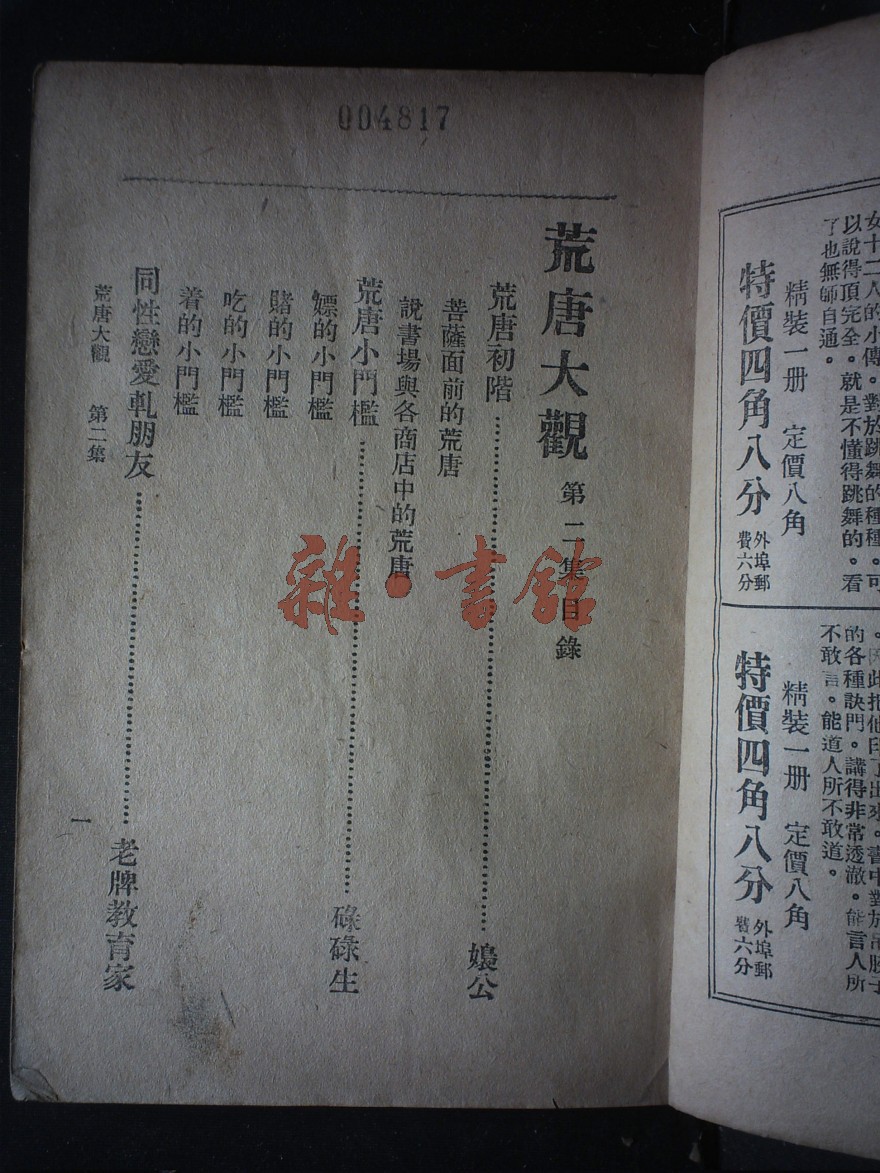 女十二人的小傳。對於跳舞的種種。可
以說得頂完全。就是不懂得跳舞的。看
了也無師自通。
精裝一册 定價八角
特價四角八分 外埠郵費六分
的各種訣門。講得非常透澈。能言人所
不敢言。能道人所不敢道。
精裝一册 定價八角
特價四角八分 外埠郵費六分
004817
荒唐大觀 第二集目錄
荒唐初階…………媳公
菩薩面前的荒唐
說書場與各商店中的荒唐
荒唐小門檻…………碌碌生
嫖的小門檻
賭的小門檻
吃的小門檻
着的小門檻
同性戀愛軋朋友…………老牌教育家
荒唐大觀 第二集
一
雜·書館